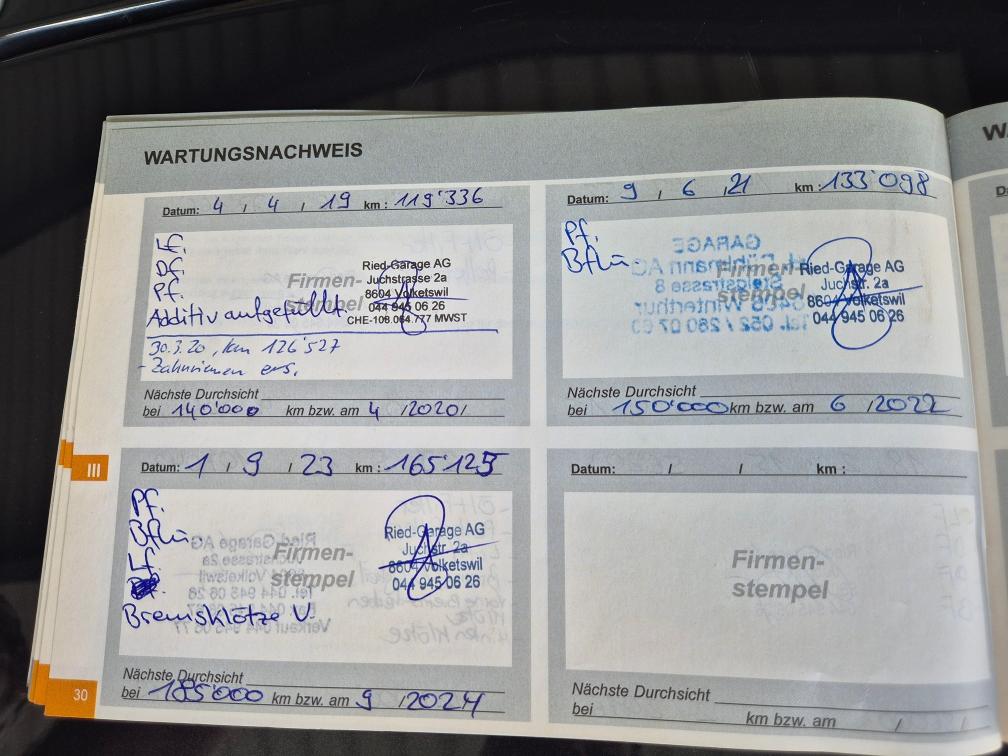 WARTUNGSNACHWEIS
Datum: 4 / 4 / 19 km : 119'336
Lf.
Df.
Pf.
Additiv aufgefüllt.
Firmen-
stempel
Ried-Garage AG
Juchstrasse 2a
8604 Volketswil
044 945 06 26
CHE-108.064.777 MWST
30.3.20, km 126'527
- Zahnriemen ers.
Nächste Durchsicht
bei 140'000 km bzw. am 4 /2020/
Datum: 9 / 6 / 21 km : 133'098
Pf.
Bflü
Firmen-
stempel
Ried-Garage AG
Juchstr. 2a
8604 Volketswil
044 945 06 26
Nächste Durchsicht
bei 150'000 km bzw. am 6 /2022
III
Datum: 1 / 9 / 23 km : 165'125
Pf.
Bflü
Lf.
Bremsklötze V.
Firmen-
stempel
Ried-Garage AG
Juchstr. 2a
8604 Volketswil
044 945 06 26
Nächste Durchsicht
bei 185'000 km bzw. am 9 /2024
Datum: / / km :
Firmen-
stempel
Nächste Durchsicht
bei km bzw. am / /
30
W